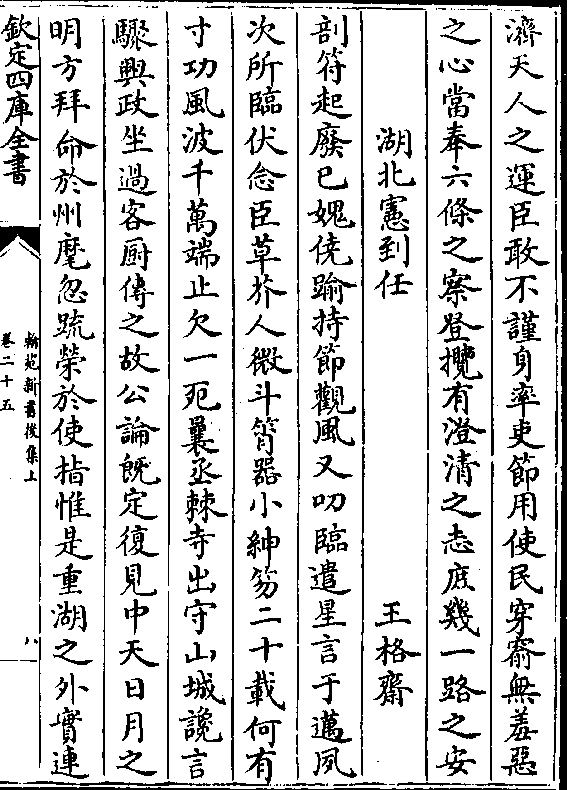 濟天人之運臣敢不謹身率吏節用使民穿窬無羞惡
之心當奉六條之察登攬有澄清之志庶幾一路之安
湖北憲到任　王格齋
剖符起廢已媿僥踰持節觀風又叨臨遣星言于邁夙
次所臨伏念臣草芥人微斗筲器小紳笏二十載何有
寸功風波千萬端止欠一死曩丞棘寺出守山城讒言
驟興政坐過客廚傳之故公論旣定復見中天日月之
明方拜命於州麾忽䟽榮於使指惟是重湖之外實連
欽定四庫全書
翰苑新書後集上
卷二十五
八